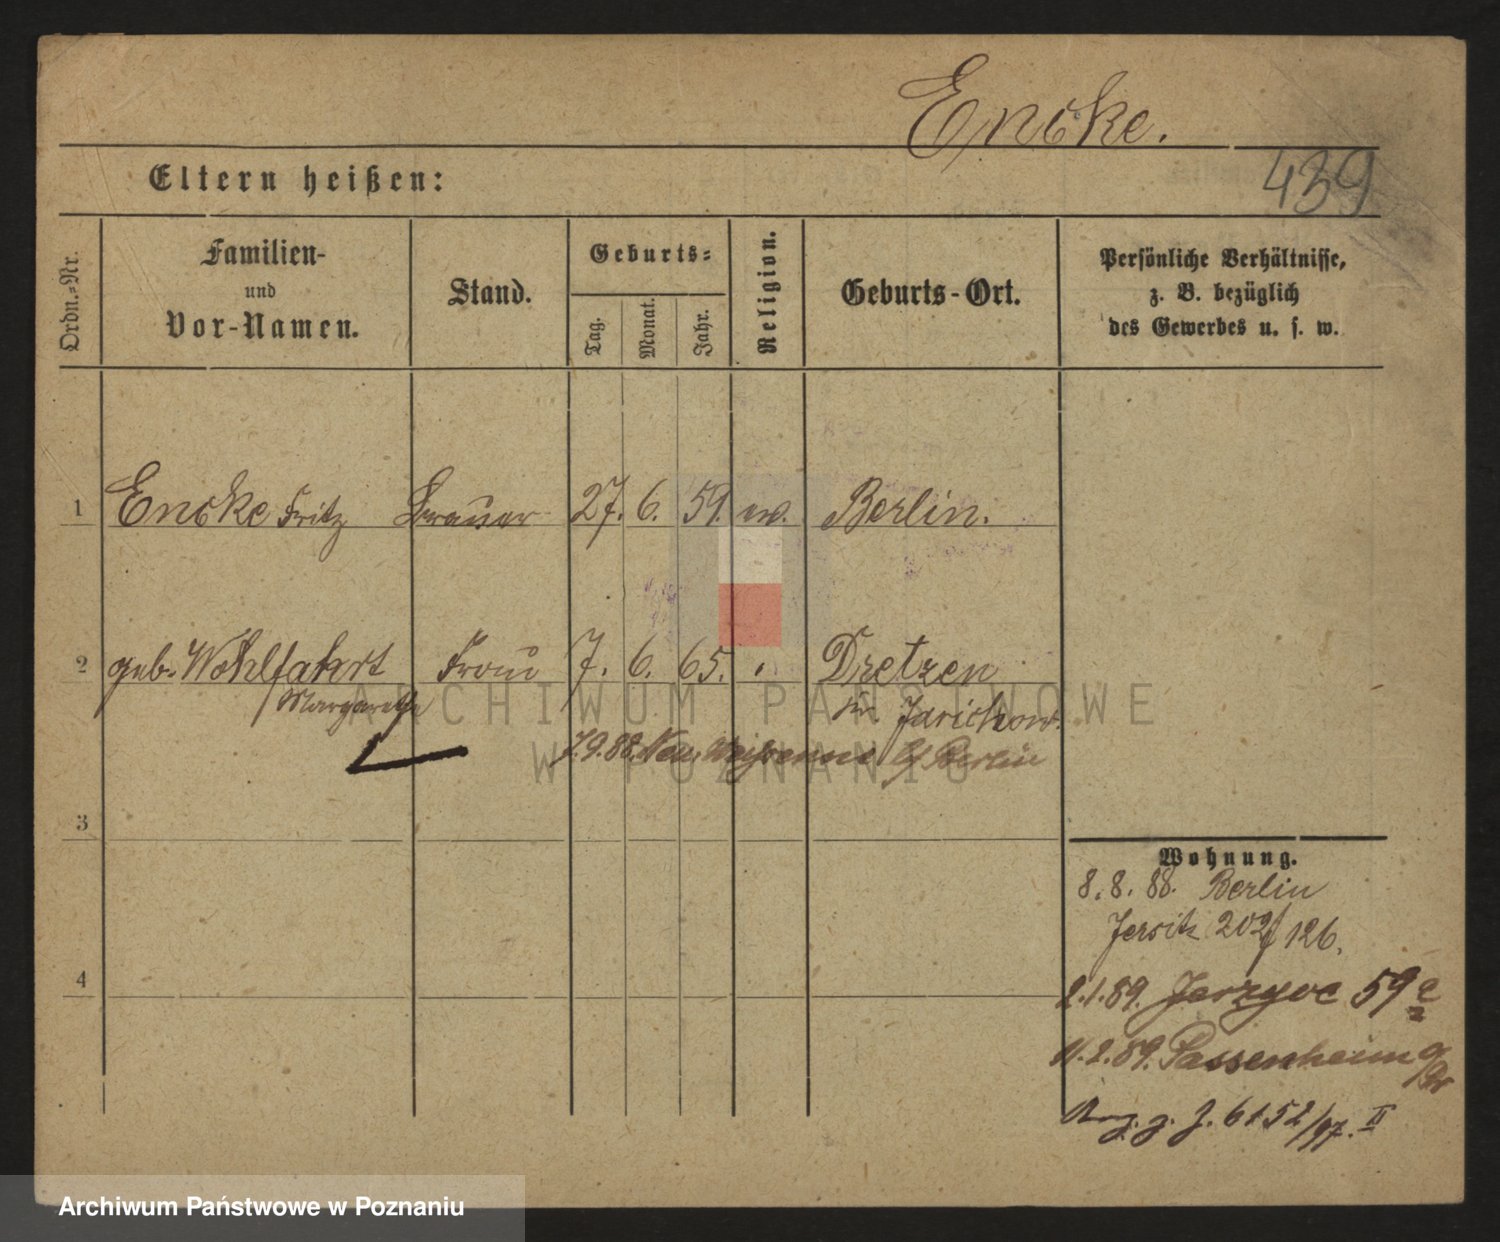 Encke.
439
Eltern heißen:
Ordn.-Nr.
Familien-
und
Vor-Namen.
Stand.
Geburts-
Tag.
Monat.
Jahr.
Religion.
Geburts-Ort.
Persönliche Verhältnisse,
z. B. bezüglich
des Gewerbes u. s. w.
1 Encke Fritz Brauer 27. 6. 59. ev. Berlin.
2 geb. Wohlfahrt Frau 7. 6. 65. Dretzen
Margarethe Jerichow.
7.9.88. Neu Weißensee b/ Berlin
3
Wohnung.
8.8.88. Berlin
Jersitz 202/126.
4
2.1.89. Jerzyce 59c
11.2.89. Passenheim
6152/97. II
ARCHIWUM PAŃSTWOWE
W POZNANIU
Archiwum Państwowe w Poznaniu